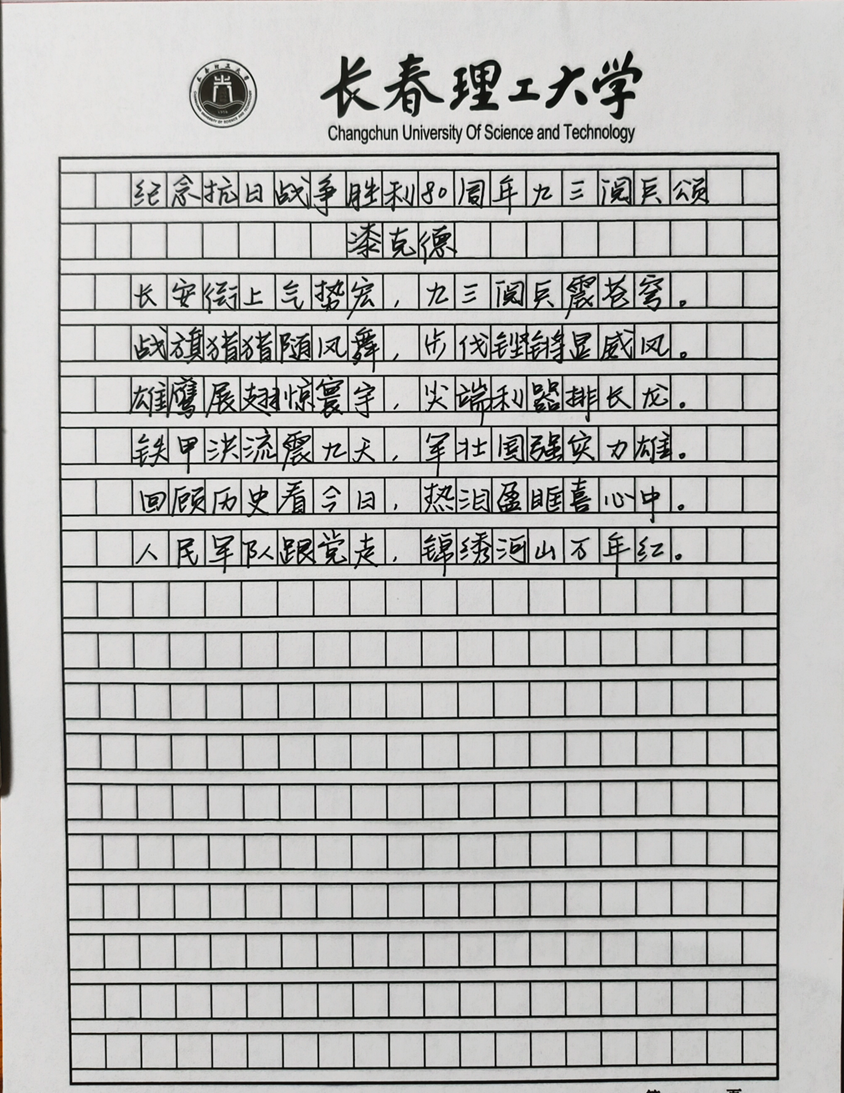 长春理工大学
Changchun University Of Science and Technology
纪念抗日战争胜利80周年九三阅兵颂
漆克德
长安街上气势宏，九三阅兵震苍穹。
战旗猎猎随风舞，步伐铿锵显威风。
雄鹰展翅惊寰宇，尖端利器排长龙。
铁甲洪流震九天，军壮国强实力雄。
回顾历史看今日，热泪盈眶喜心中。
人民军队跟党走，锦绣河山万年红。